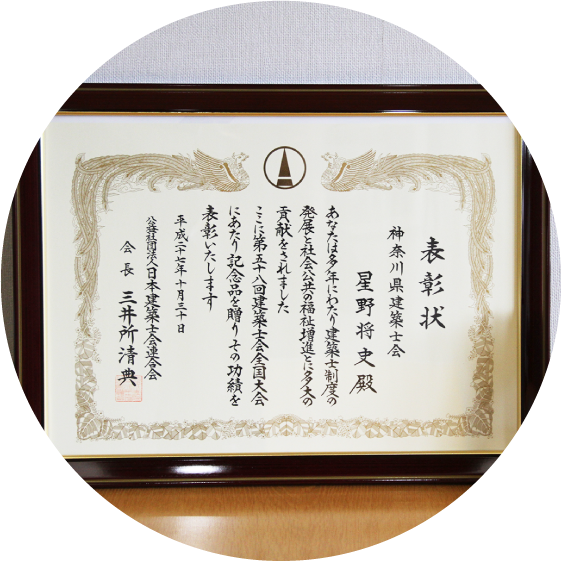 表彰状
神奈川県建築士会
星野将史殿
あなたは多年にわたり建築士制度の
発展と社会公共の福祉増進とに多大の
貢献をされました
ここに第五十八回建築士会全国大会
にあたり記念品を贈りその功績を
表彰いたします
平成二十七年十月三十日
公益社団法人日本建築士会連合会
会長 三井所清典